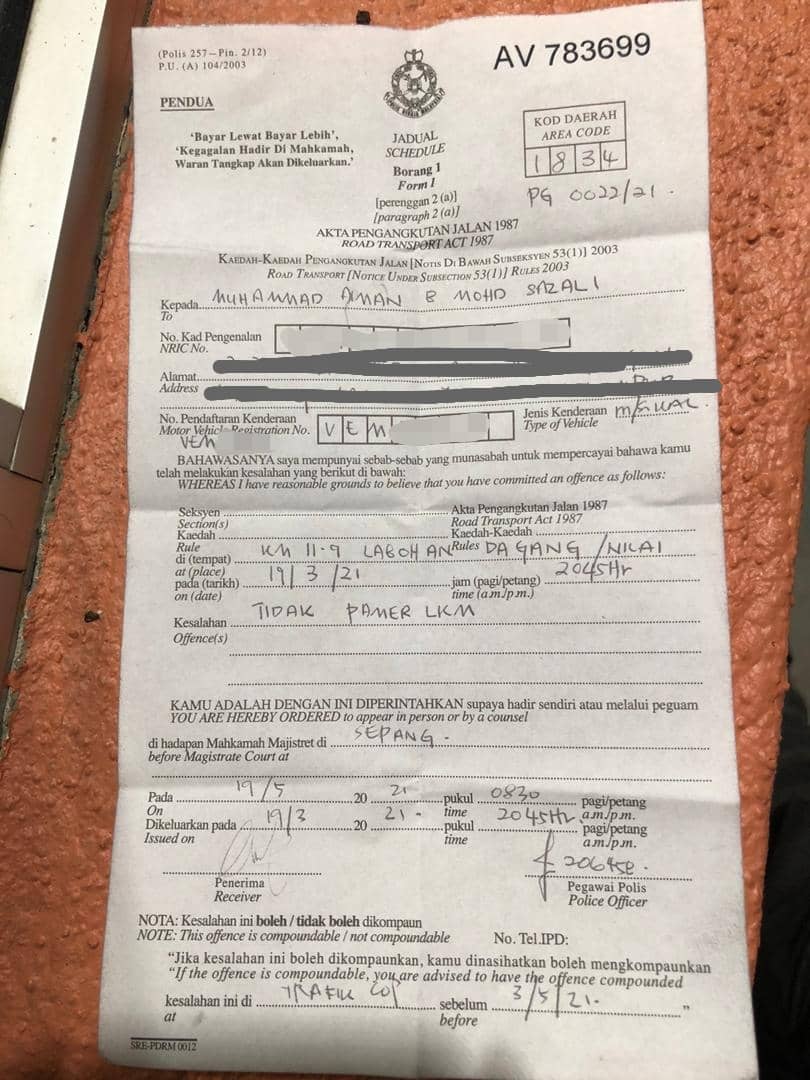 (Polis 257–Pin. 2/12)
P.U. (A) 104/2003
AV 783699
PENDUA
'Bayar Lewat Bayar Lebih',
'Kegagalan Hadir Di Mahkamah,
Waran Tangkap Akan Dikeluarkan.'
JADUAL
SCHEDULE
Borang 1
Form 1
[perenggan 2 (a)]
[paragraph 2 (a)]
KOD DAERAH
AREA CODE
1834
PG 0022/21.
AKTA PENGANGKUTAN JALAN 1987
ROAD TRANSPORT ACT 1987
KAEDAH-KAEDAH PENGANGKUTAN JALAN [NOTIS DI BAWAH SUBSEKSYEN 53(1)] 2003
ROAD TRANSPORT [NOTICE UNDER SUBSECTION 53(1)] RULES 2003
Kepada MUHAMMAD AIMAN B MOHD SAZALI
To
No. Kad Pengenalan
NRIC No.
Alamat
Address
No. Pendaftaran Kenderaan
Motor Vehicle Registration No. VEM
Jenis Kenderaan M/SIKAL.
Type of Vehicle
VEM
BAHAWASANYA saya mempunyai sebab-sebab yang munasabah untuk mempercayai bahawa kamu
telah melakukan kesalahan yang berikut di bawah:
WHEREAS I have reasonable grounds to believe that you have committed an offence as follows:
Seksyen Akta Pengangkutan Jalan 1987
Section(s) Road Transport Act 1987
Kaedah Kaedah-Kaedah
Rule Rules
di (tempat) KM 11.9 LABOHAN DAGANG/NILAI
at (place)
pada (tarikh) 19/3/21 jam (pagi/petang) 2045Hr
on (date) time (a.m./p.m.)
Kesalahan TIDAK PAMER LKM
Offence(s)
KAMU ADALAH DENGAN INI DIPERINTAHKAN supaya hadir sendiri atau melalui peguam
YOU ARE HEREBY ORDERED to appear in person or by a counsel
di hadapan Mahkamah Majistret di SEPANG.
before Magistrate Court at
Pada 19/5 20 21 pukul 0830 pagi/petang
On time a.m./p.m.
Dikeluarkan pada 19/3 20 21. pukul 2045Hr pagi/petang
Issued on time a.m./p.m.
Penerima
Receiver
Pegawai Polis
Police Officer
NOTA: Kesalahan ini boleh / tidak boleh dikompaun
NOTE: This offence is compoundable / not compoundable
No. Tel.IPD:
"Jika kesalahan ini boleh dikompaunkan, kamu dinasihatkan boleh mengkompaunkan
"If the offence is compoundable, you are advised to have the offence compounded
kesalahan ini di TRAFIK sebelum 3/5/21. "
at before
SRE-PDRM 0012